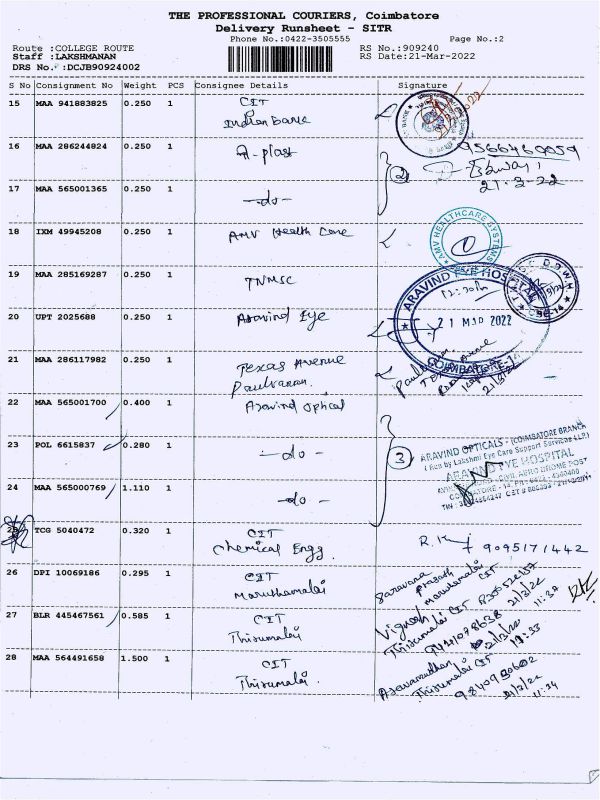 THE PROFESSIONAL COURIERS, Coimbatore
Delivery Runsheet - SITR
Phone No.:0422-3505555 Page No.:2
Route :COLLEGE ROUTE RS No.:909240
Staff :LAKSHMANAN RS Date:21-Mar-2022
DRS No.:DCJB90924002
S No Consignment No Weight PCS Consignee Details Signature
15 MAA 941883825 0.250 1 CIT
Indian Bank
16 MAA 286244824 0.250 1 A-plast 9566469059
21-3-22
17 MAA 565001365 0.250 1 -do- 2
18 IXM 49945208 0.250 1 AMV Health Care
AMV HEALTHCARE SYSTEMS
19 MAA 285169287 0.250 1 TNMSC
ARAVIND EYE HOSPITAL
20 UPT 2025688 0.250 1 Aravind Eye
21 MAR 2022
COIMBATORE-14
21 MAA 286117982 0.250 1 Texas Avenue
Paulvannan.
22 MAA 565001700 0.400 1 Aravind Optical
23 POL 6615837 0.280 1 -do- 3
ARAVIND OPTICALS - (COIMBATORE BRANCH
( Run by Lakshmi Eye Care Support Services LLP)
ARAVIND EYE HOSPITAL
24 MAA 565000769 1.110 1 -do-
25 TCG 5040472 0.320 1 CIT
Chemical Engg. 9095171442
26 DPI 10069186 0.295 1 CIT
Maruthamalai
Saravana Prasath
Maruthamalai CIT
27 BLR 445467561 0.585 1 CIT
Thirumalai
Vignesh
Thirumalai CIT
28 MAA 564491658 1.500 1 CIT
Thirumalai.
Thirumalai CIT